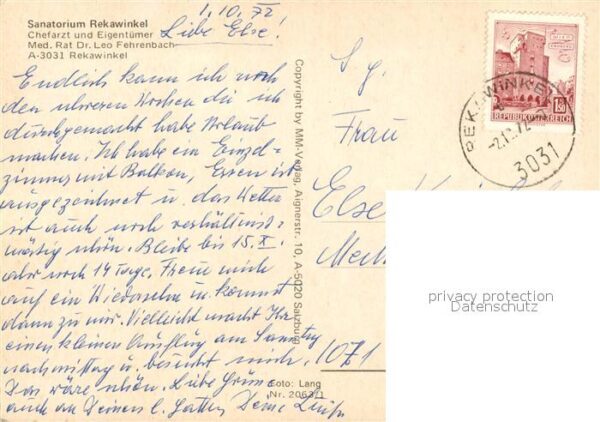 1.10.72
Sanatorium Rekawinkel
Chefarzt und Eigentümer
Med. Rat Dr. Leo Fehrenbach
A-3031 Rekawinkel
Liebe Else!
Endlich kann ich nach
den schweren Wochen die ich
durchgemacht habe Urlaub
machen. Ich habe ein Einzel-
zimmer mit Balkon, Essen ist
ausgezeichnet u. das Wetter
ist auch noch verhältnis-
mässig schön. Bleibe bis 15.X.
also noch 14 Tage. Freue mich
auf ein Wiedersehn u. kommst
dann zu mir. Vielleicht macht Ihr
einen kleinen Ausflug am Samstag
nachmittag u. besucht mich.
Das wäre schön. Liebe Grüsse
auch an Deinen l. Gatten Deine
Foto: Lang
Nr. 2063/1
Copyright by MM-Verlag, Aignerstr. 10, A-5020 Salzburg
S. g.
Frau
Else
1071
REPUBLIK ÖSTERREICH
REKAWINKEL
3031
privacy protection
Datenschutz